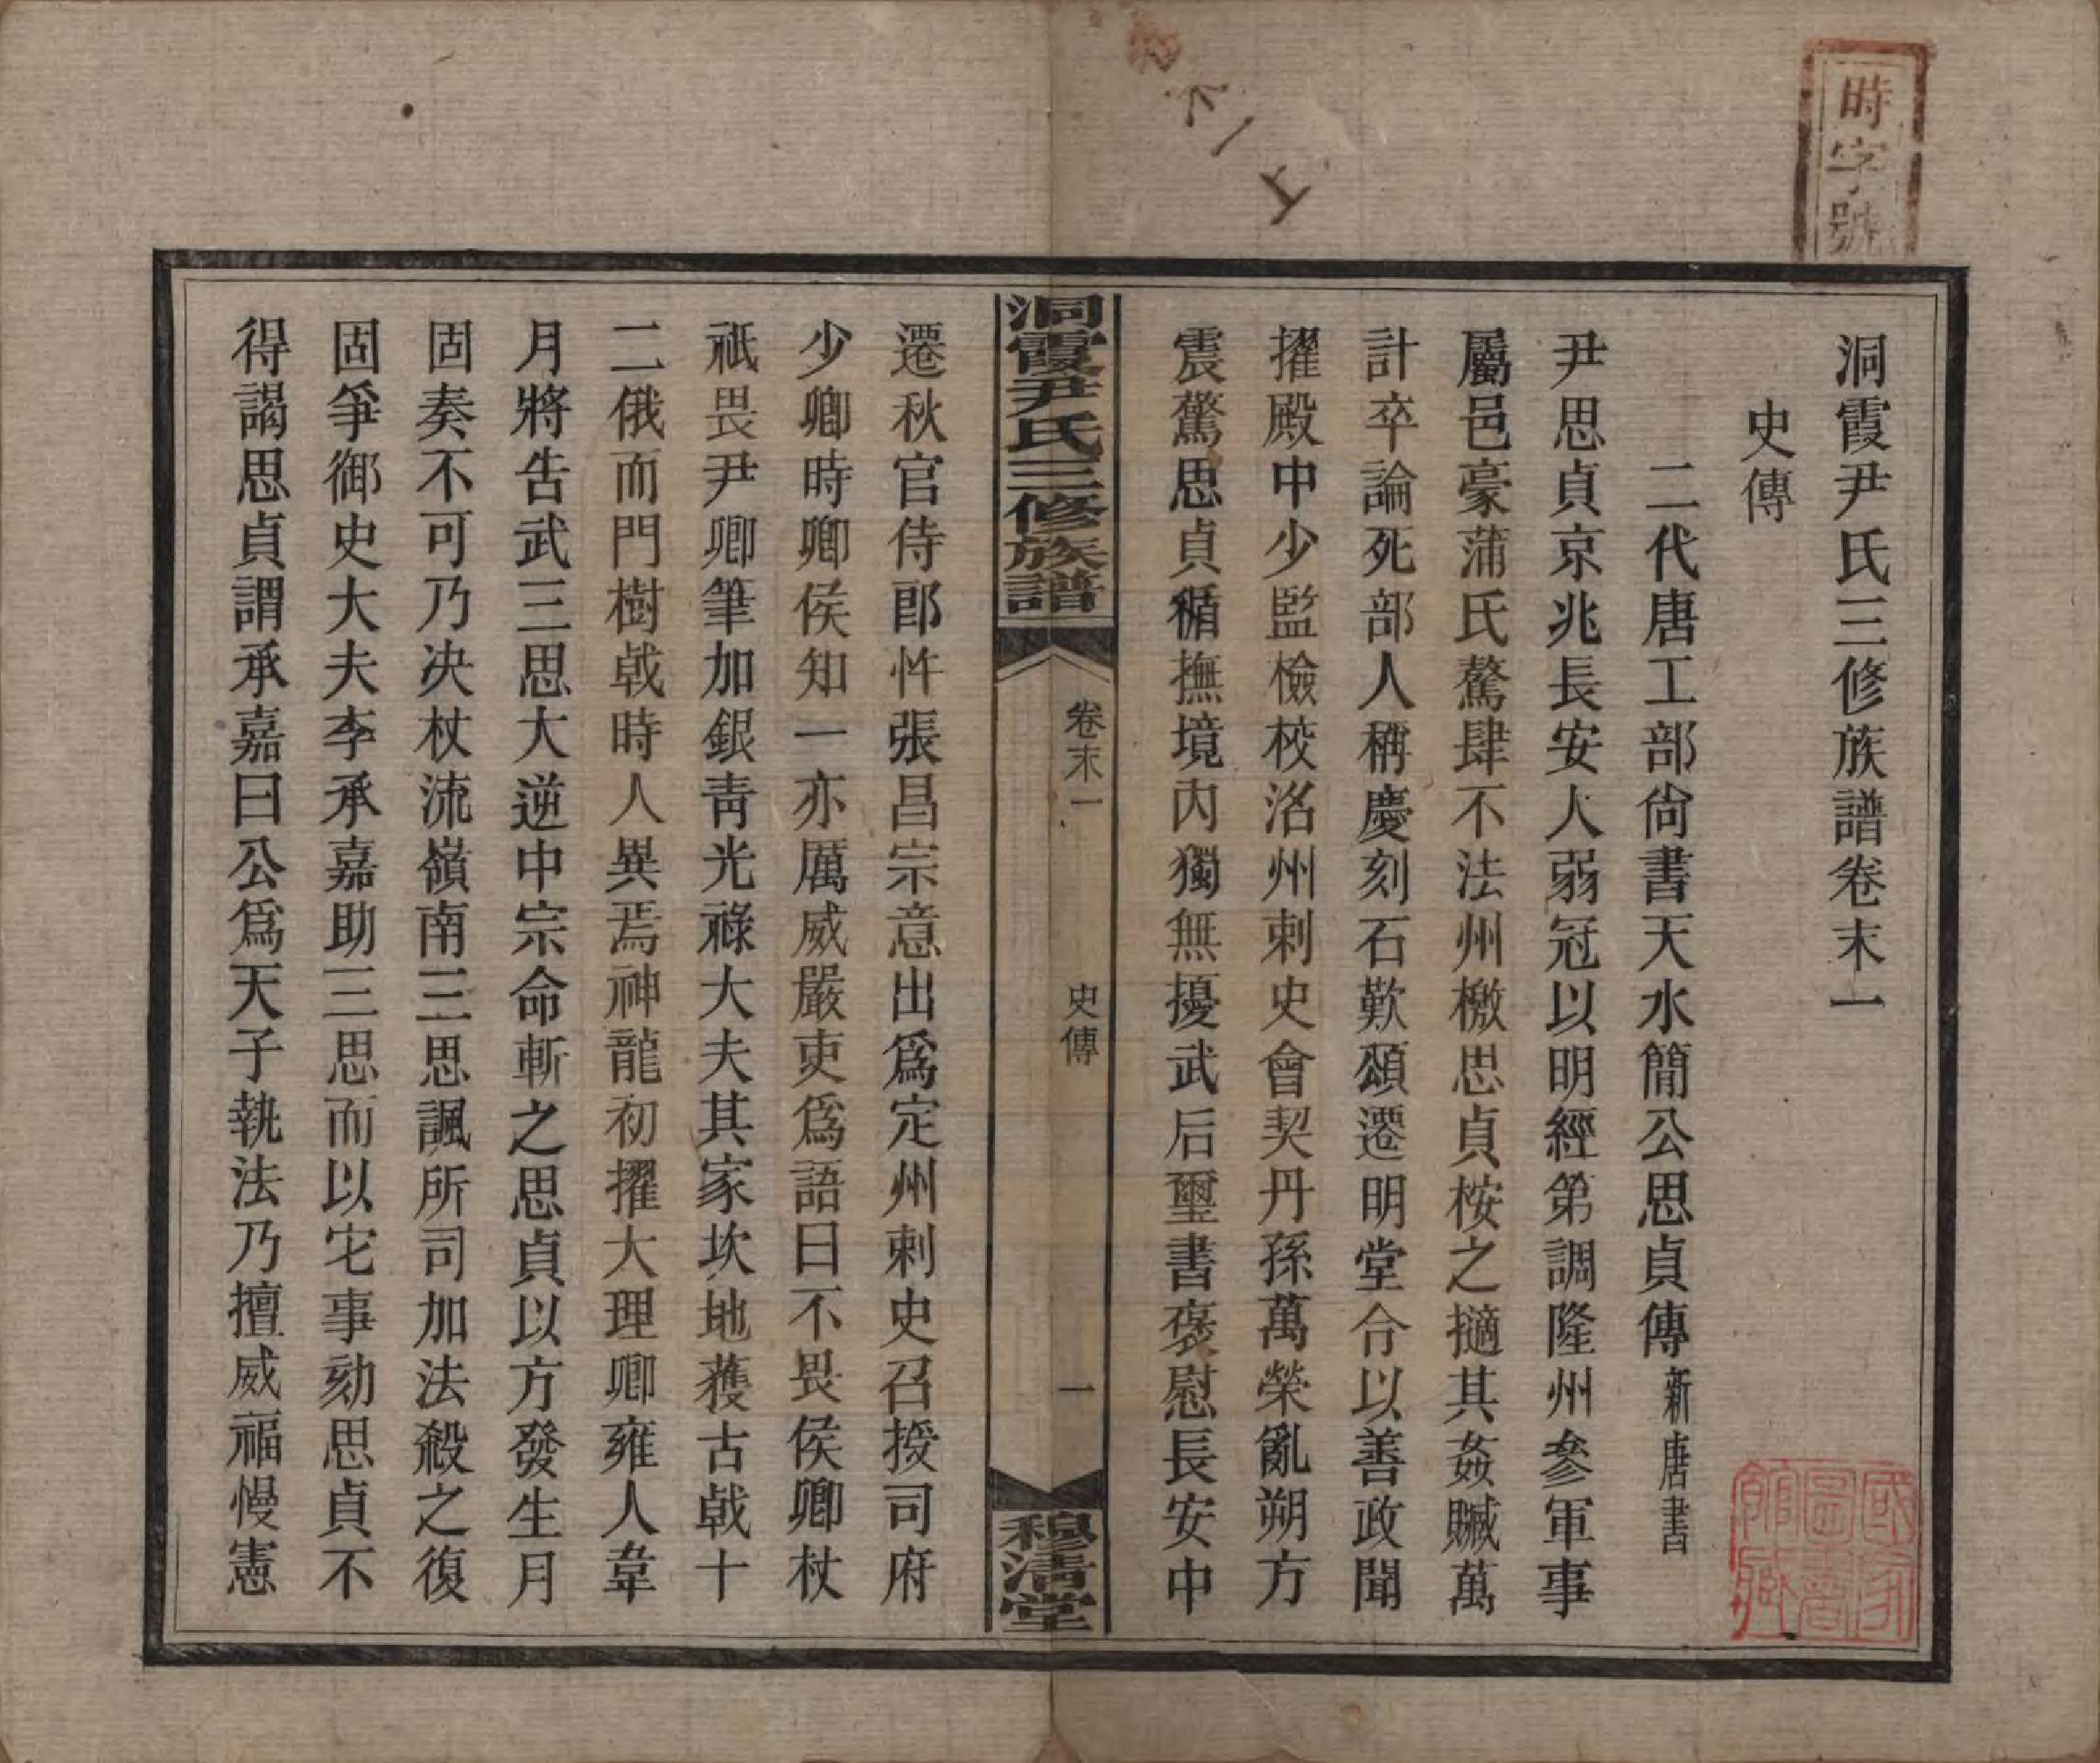 時字號
洞霞尹氏三修族譜卷末一
史傳
二代唐工部尙書天水簡公思貞傳新唐書
尹思貞京兆長安人弱冠以明經第調隆州參軍事
屬邑豪蒲氏驁肆不法州檄思貞桉之擿其姦贓萬
計卒論死部人稱慶刻石歎頌遷明堂令以善政聞
擢殿中少監檢校洺州刺史會契丹孫萬榮亂朔方
震驚思貞循撫境內獨無擾武后璽書褒慰長安中
洞霞尹氏三修族譜
卷末一
史傳
一
穆清堂
遷秋官侍郎忤張昌宗意出爲定州刺史召授司府
少卿時卿侯知一亦厲威嚴吏爲語曰不畏侯卿杖
祇畏尹卿筆加銀靑光祿大夫其家坎地獲古戟十
二俄而門樹戟時人異焉神龍初擢大理卿雍人韋
月將告武三思大逆中宗命斬之思貞以方發生月
固奏不可乃決杖流嶺南三思諷所司加法殺之復
固爭御史大夫李承嘉助三思而以它事劾思貞不
得謁思貞謂承嘉曰公爲天子執法乃擅威福慢憲
國家圖書館藏